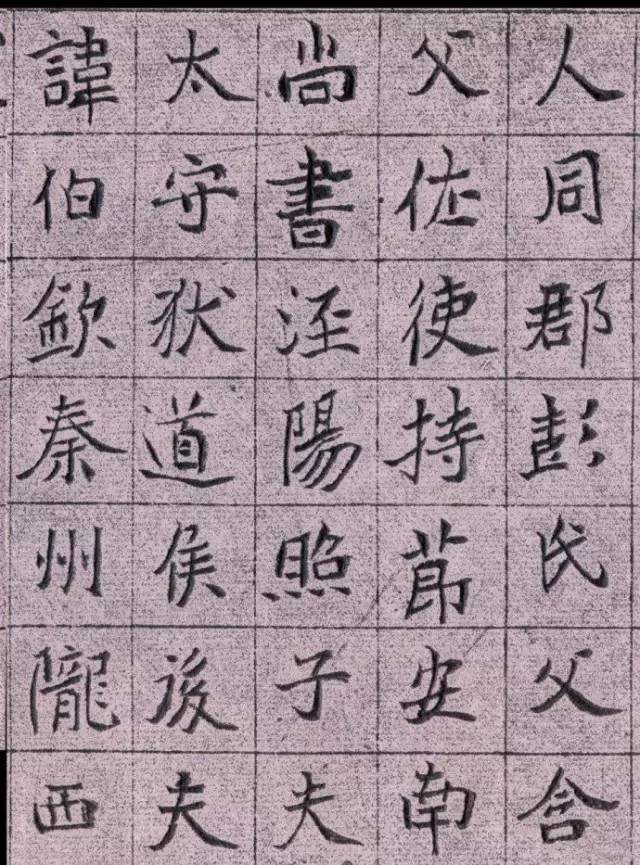 人同郡彭氏父含
父佐使持莭安南
尚書涇陽照子夫
太守狄道侯後夫
諱伯欽秦州隴西